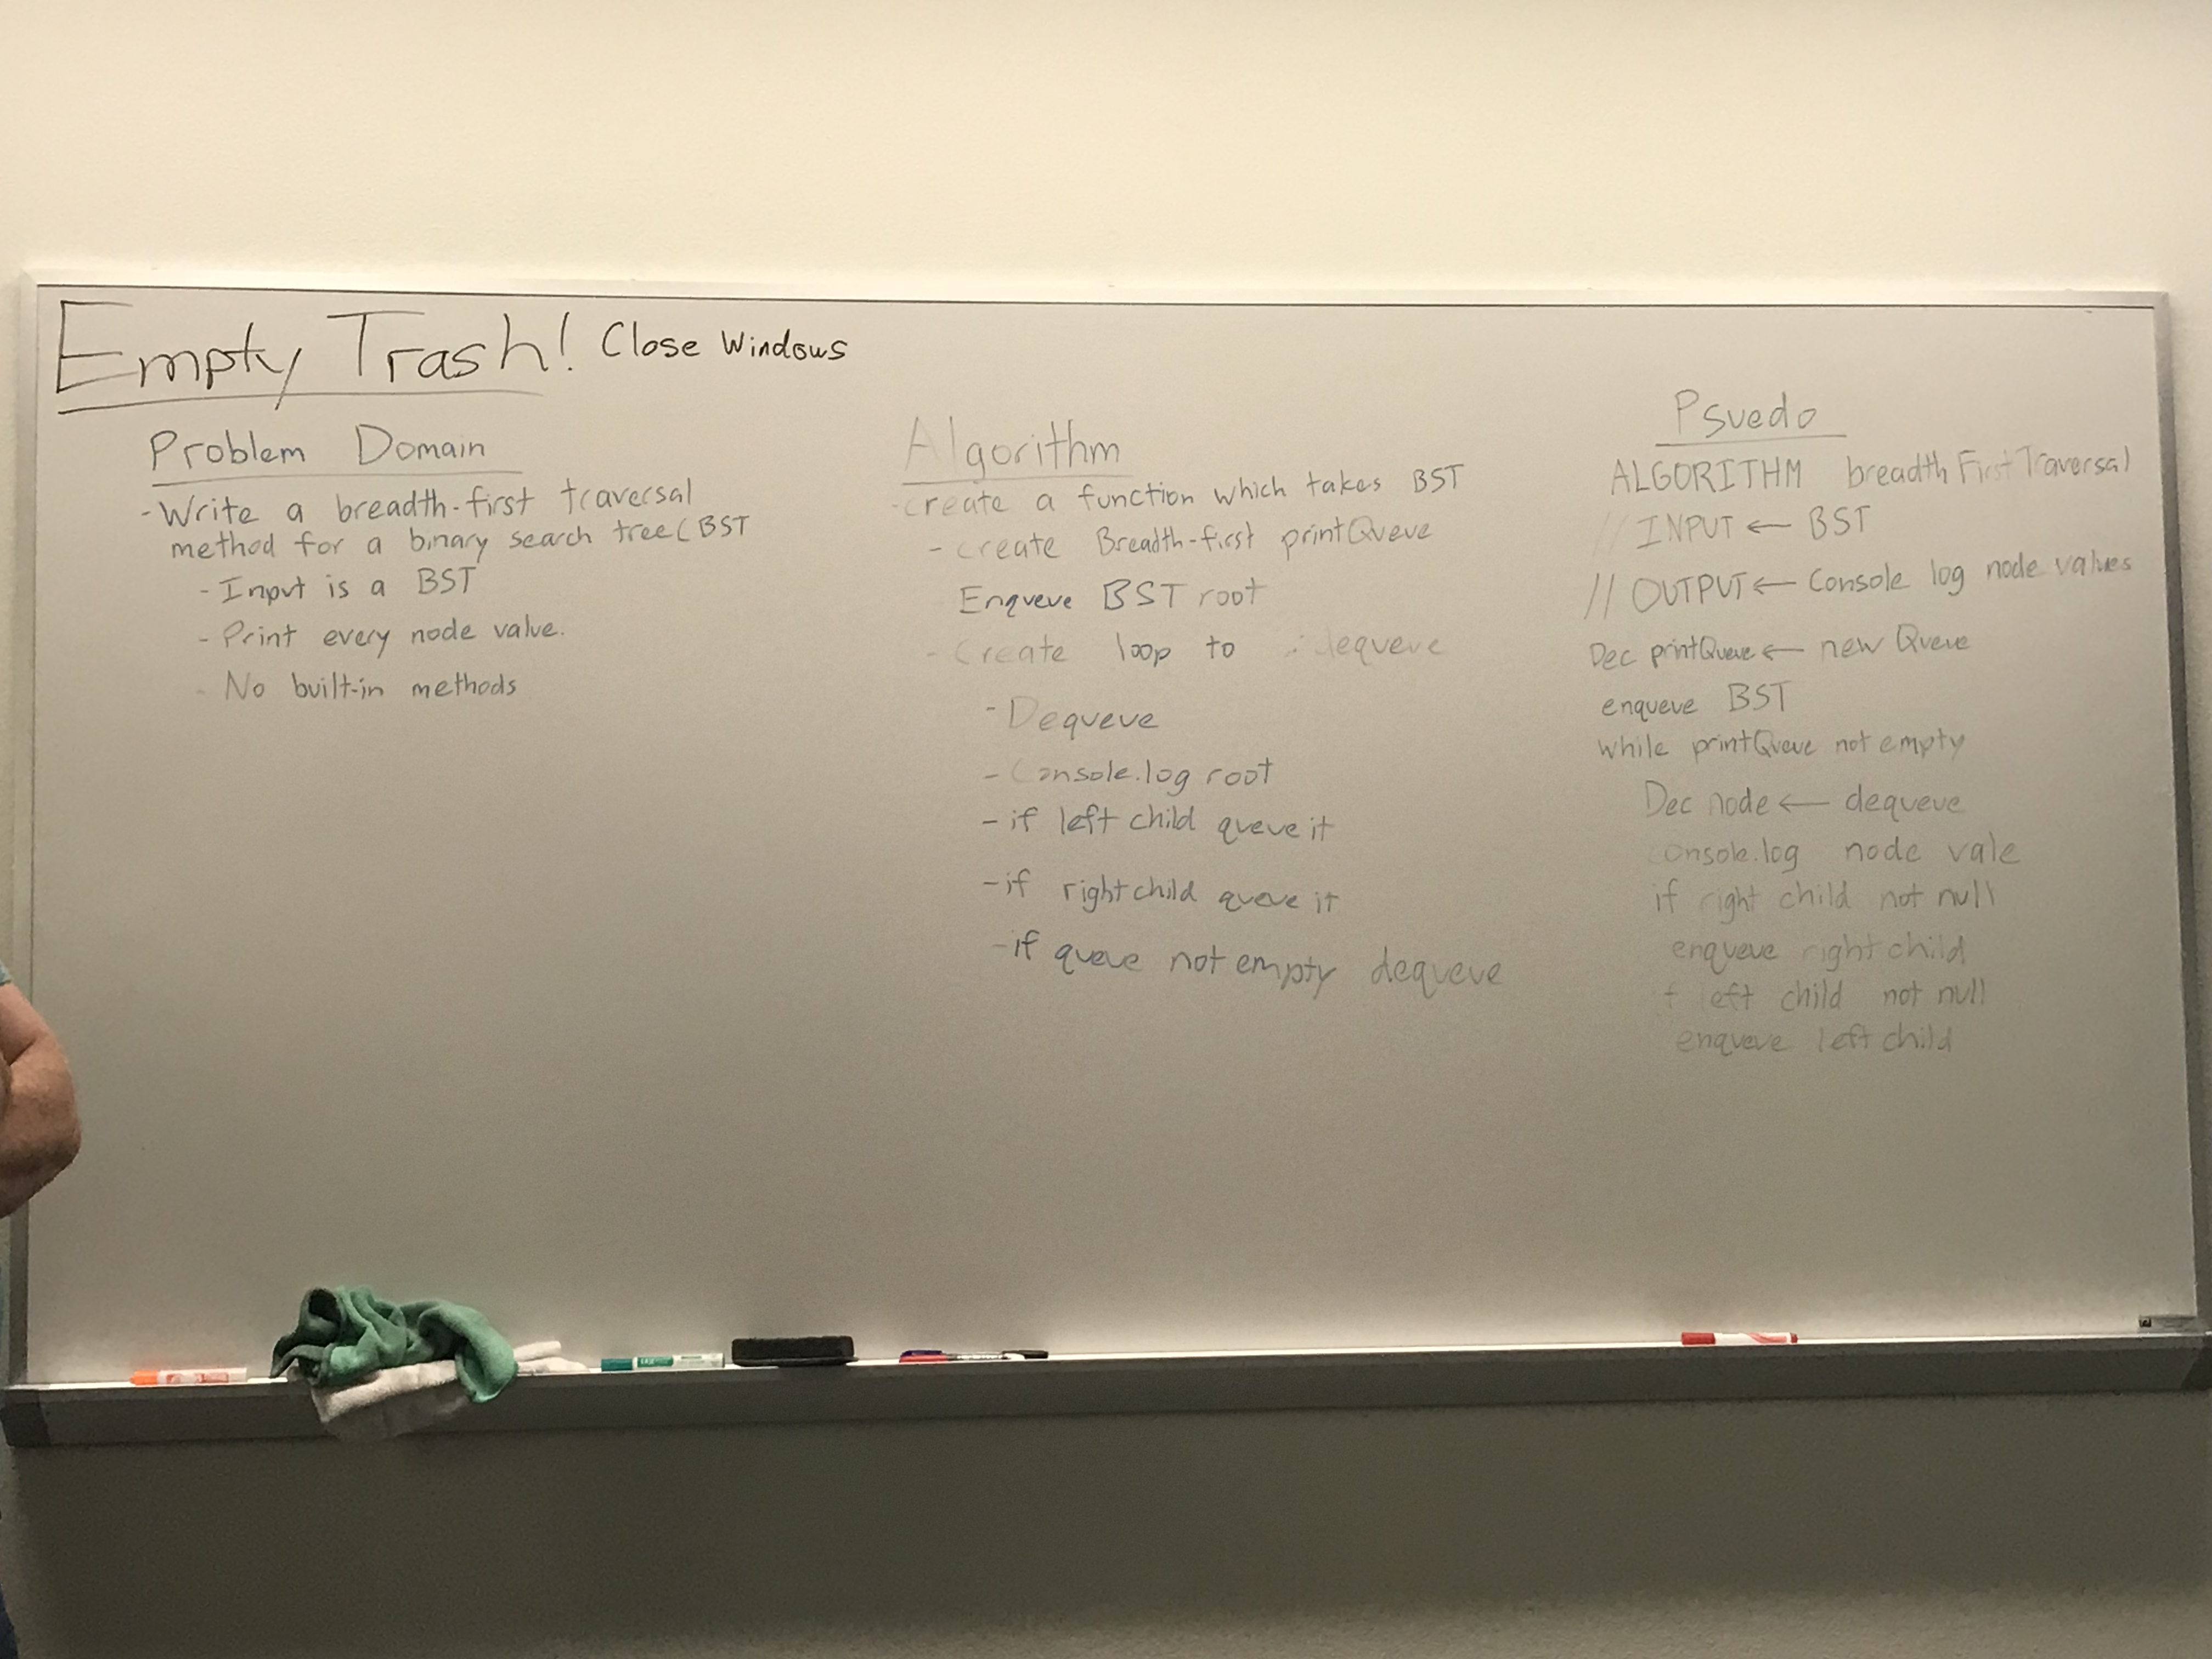 Empty Trash! Close Windows
Problem Domain
- Write a breadth-first traversal
method for a binary search tree (BST
- Input is a BST
- Print every node value.
- No built-in methods
Algorithm
- create a function which takes BST
- create Breadth-first printQueue
Enqueue BST root
- Create loop to dequeue
- Dequeue
- Console.log root
- if left child queue it
- if right child queue it
- if queue not empty dequeue
Psuedo
ALGORITHM breadth First Traversal
// INPUT ← BST
// OUTPUT ← Console log node values
Dec printQueue ← new Queue
enqueue BST
while printQueue not empty
Dec node ← dequeue
console.log node vale
if right child not null
enqueue right child
f left child not null
enqueue left child